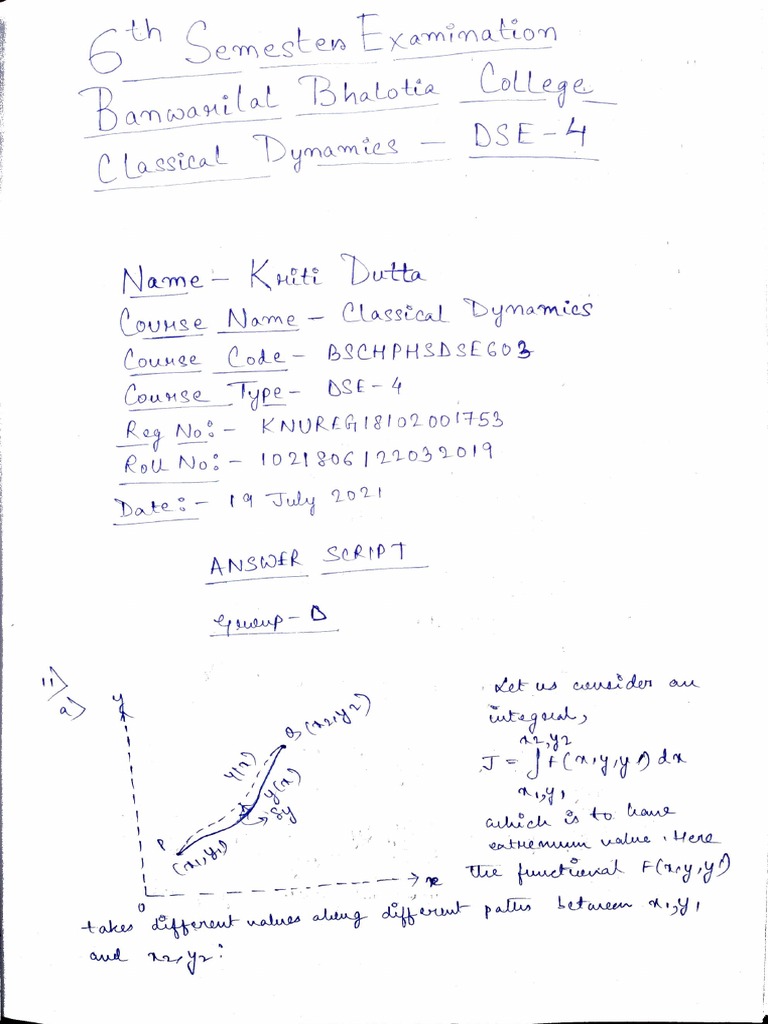 6th Semester Examination
Banwarilal Bhalotia College
Classical Dynamics - DSE-4
Name - Kriti Dutta
Course Name - Classical Dynamics
Course Code - BSCHPHSDSE603
Course Type - DSE-4
Reg No:- KNUREG18102001753
Roll No:- 1021806122032019
Date:- 19 July 2021
ANSWER SCRIPT
Group - D
11)
a)
y
Q (x2,y2)
Y(x)
y(x)
δy
P
(x1,y1)
0
x
Let us consider an
integral,
x2,y2
J = ∫F(x,y,y') dx
x1,y1
which is to have
extremum value. Here
the functional F(x,y,y')
takes different values along different paths between x1,y1
and x2,y2: